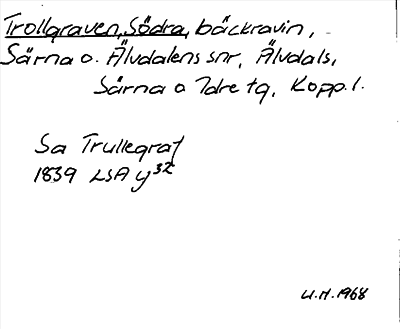 Trollgraven, Södra, bäckravin,
Särna o. Älvdalens snr, Älvdals,
Särna o Idre tg, Kopp. l.
Sa Trullegraf
1839 LSA y³²
U.H. 1968